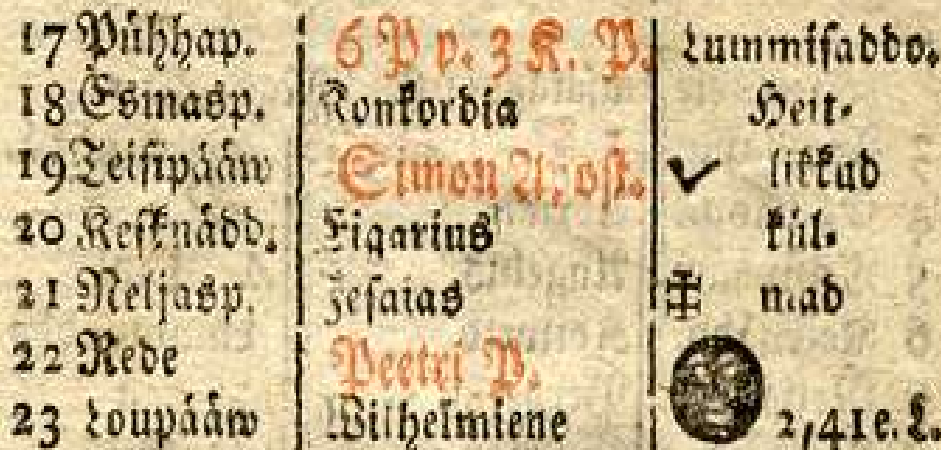 17 Pühhap. 6 P p. 3 K. P. Lummisaddo.
18 Esmasp. Konkordia Heit-
19 Teisipääw Simon Apost. likkud
20 Kesknädd. Eigarius kül-
21 Neljasp. Jesaias mad
22 Rede Peetri P.
23 Loupääw Wilhelmiene 2,41 e. L.